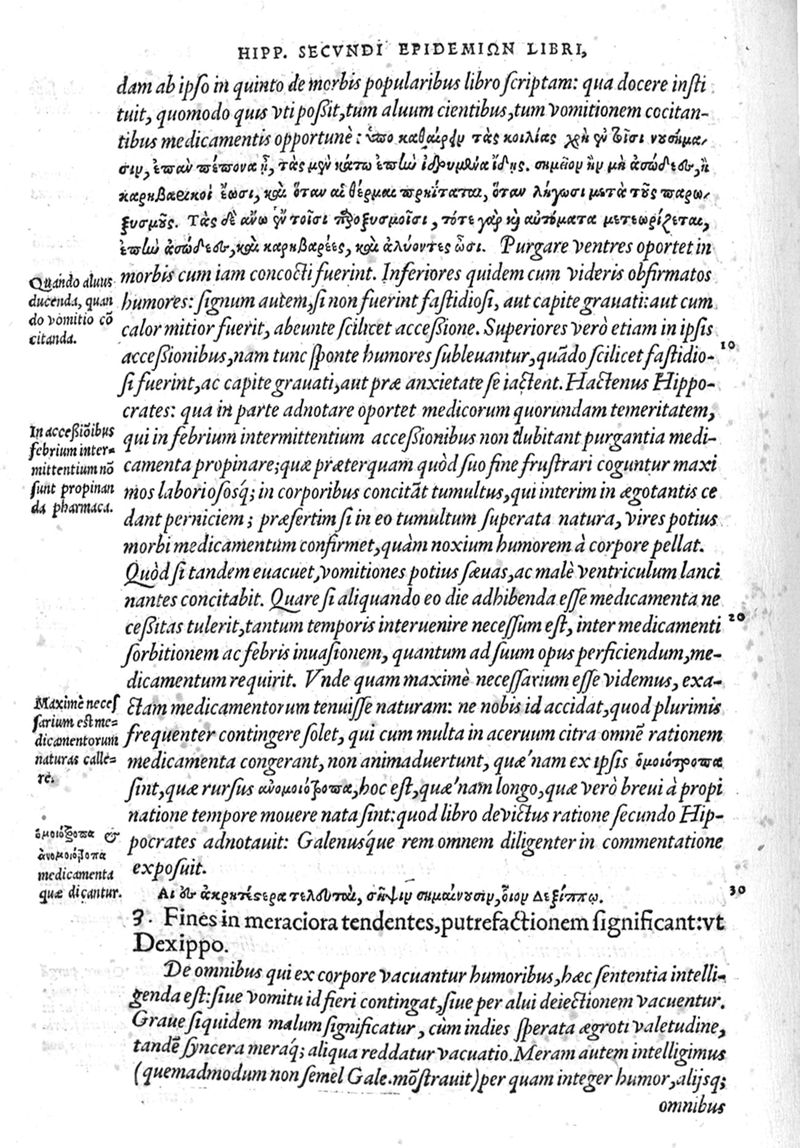 HIPP. SECVNDI EPIDEMIΩN LIBRI,
dam ab ipſo in quinto de morbis popularibus libro ſcriptam: qua docere inſti
tuit, quomodo quis vti poßit, tum aluum cientibus, tum vomitionem cōcitan-
tibus medicamentis opportunè: ὑπο καθαίρειν τὰς κοιλίας χρὴ ἐν τοῖσι νουσήμα,
σιν, ἐπὰν πέπονα ᾖ, τὰς μὲν κάτω ἐπὴν ἱδρυμένα ἴδῃς. σημεῖον ἢν μὴ ἀσώδεες, ἢ
καρηβαρικοὶ ἔωσι, καὶ ὅταν αἱ θέρμαι πρηΰταται, ὅταν λήγωσι μετὰ τοὺς παρω,
ξυσμούς. Τὰς δὲ ἄνω ἐν τοῖσι παροξυσμοῖσι, τότε γὰρ καὶ αὐτόματα μετεωρίζεται,
ἐπὴν ἀσώδεες, καὶ καρηβαρέες, καὶ ἀλύοντες ὦσι. Purgare ventres oportet in
Quando aluus
ducenda, quan
do vomitio cō
citanda.
morbis cum iam concocti fuerint. Inferiores quidem cum videris obfirmatos
humores: ſignum autem, ſi non fuerint faſtidioſi, aut capite grauati: aut cum
calor mitior fuerit, abeunte ſcilicet acceßione. Superiores verò etiam in ipſis
acceßionibus, nam tunc ſponte humores ſubleuantur, quādo ſcilicet faſtidio- 10
ſi fuerint, ac capite grauati, aut præ anxietate ſe iactent. Hactenus Hippo-
crates: qua in parte adnotare oportet medicorum quorundam temeritatem,
In acceßiōibus
febrium inter-
mittentium nō
ſunt propinan
da pharmaca.
qui in febrium intermittentium acceßionibus non dubitant purgantia medi-
camenta propinare; quæ præterquam quòd ſuo fine fruſtrari coguntur maxi
mos laborioſosq; in corporibus concitāt tumultus, qui interim in ægotantis ce
dant perniciem; præſertim ſi in eo tumultum ſuperata natura, vires potius
morbi medicamentum confirmet, quàm noxium humorem à corpore pellat.
Quòd ſi tandem euacuet, vomitiones potius ſæuas, ac malè ventriculum lanci
nantes concitabit. Quare ſi aliquando eo die adhibenda eſſe medicamenta ne
ceßitas tulerit, tantum temporis interuenire neceſſum eſt, inter medicamenti 20
ſorbitionem ac febris inuaſionem, quantum ad ſuum opus perficiendum, me-
dicamentum requirit. Vnde quam maximè neceſſarium eſſe videmus, exa-
Maximè neceſ
ſarium eſt me-
dicamentorum
naturas calle-
re.
ctam medicamentorum tenuiſſe naturam: ne nobis id accidat, quod plurimis
frequenter contingere ſolet, qui cum multa in aceruum citra omnē rationem
medicamenta congerant, non animaduertunt, quæ'nam ex ipſis ὁμοιότροπα
ſint, quæ rurſus ἀνομοιότροπα, hoc eſt, quæ'nam longo, quæ verò breui à propi
natione tempore mouere nata ſint: quod libro de victus ratione ſecundo Hip-
ὁμοιότροπα &
ἀνομοιότροπα
medicamenta
quæ dicantur.
pocrates adnotauit: Galenusq́ue rem omnem diligenter in commentatione
expoſuit.
Αἱ δὲ ἀκρητέστερα τελευταί, σῆψιν σημαίνουσιν, οἷον Δεξίππῳ. 30
3. Fines in meraciora tendentes, putrefactionem ſignificant: vt
Dexippo.
De omnibus qui ex corpore vacuantur humoribus, hæc ſententia intelli-
genda eſt: ſiue vomitu id fieri contingat, ſiue per alui deiectionem vacuentur.
Graue ſiquidem malum ſignificatur, cùm indies ſperata ægroti valetudine,
tandē ſyncera meraq́; aliqua reddatur vacuatio. Meram autem intelligimus
(quemadmodum non ſemel Gale. mōſtrauit) per quam integer humor, alijsq́;
omnibus